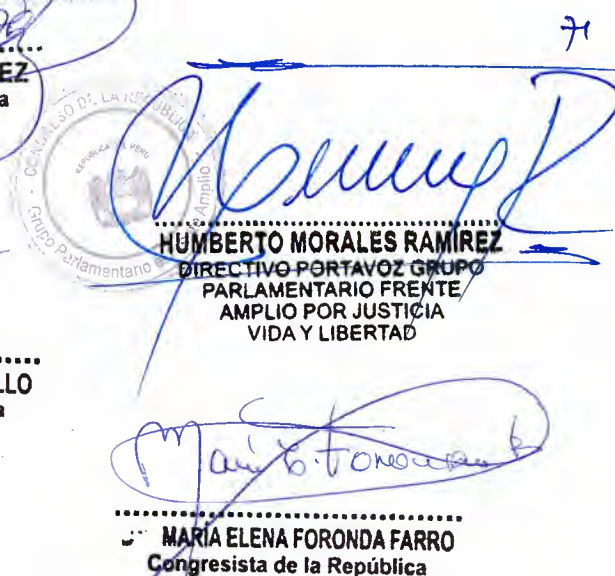 71
EZ
a
CONGRESO DE LA REPÚBLICA
REPUBLICA DEL PERU
Grupo Parlamentario Amplio
HUMBERTO MORALES RAMÍREZ
DIRECTIVO PORTAVOZ GRUPO
PARLAMENTARIO FRENTE
AMPLIO POR JUSTICIA
VIDA Y LIBERTAD
LLO
a
MARÍA ELENA FORONDA FARRO
Congresista de la República